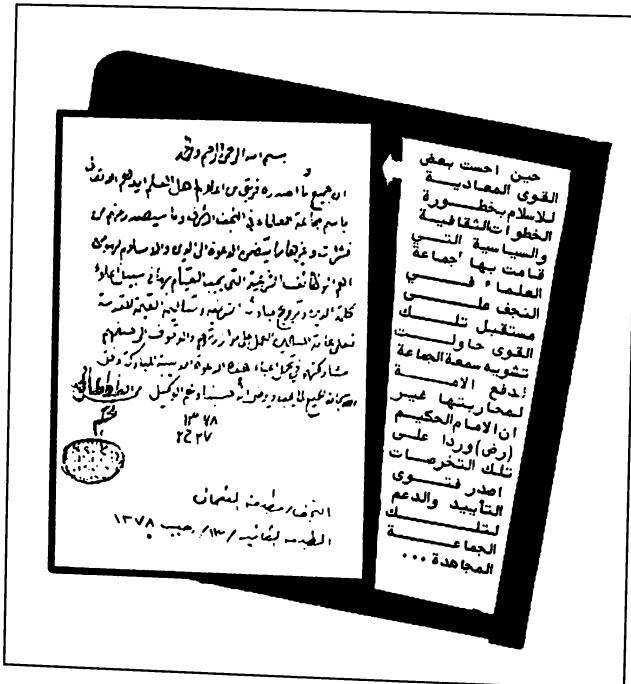 حين احست بعض
القوى المعادية
للاسلام بخطورة
الخطوات الثقافية
والسياسية التي
قامت بها جماعة
العلماء في
النجف على
مستقبل تلك
القوى حاولت
تشويه سمعة الجماعة
لدفع الامة
لمحاربتها غير
ان الامام الحكيم
(رض) وردا على
تلك التخرصات
اصدر فتوى
التأييد والدعم
لتلك
الجماعة
المجاهدة ...
بسم الله الرحمن الرحيم
ان جميع ما اصدره فريق من اهل العلم ايدهم الله تعالى
باسم جماعة العلماء في النجف الاشرف وما سيصدر منهم من
نشرات وغيرها مما يتضمن الدعوة الى الدين والاسلام لهو من
اهم الوظائف الشرعية التي يجب القيام بها في سبيل اعلاء
كلمة الدين وترويج مبادئه وتعاليمه القيمة المقدسة
فعلى عامة المسلمين العمل على مؤازرتهم والوقوف الى صفهم
مشاركتهم في تحمل اعباء هذه الدعوة الدينية المباركة وفق
الله الجميع لما يحب ويرضى انه حسبنا ونعم الوكيل
الطباطبائي
الحكيم
١٣٧٨
٢٧
النجف / مطبعة النعمان
الطبعة الثانية / ١٣ / رجب ١٣٧٨